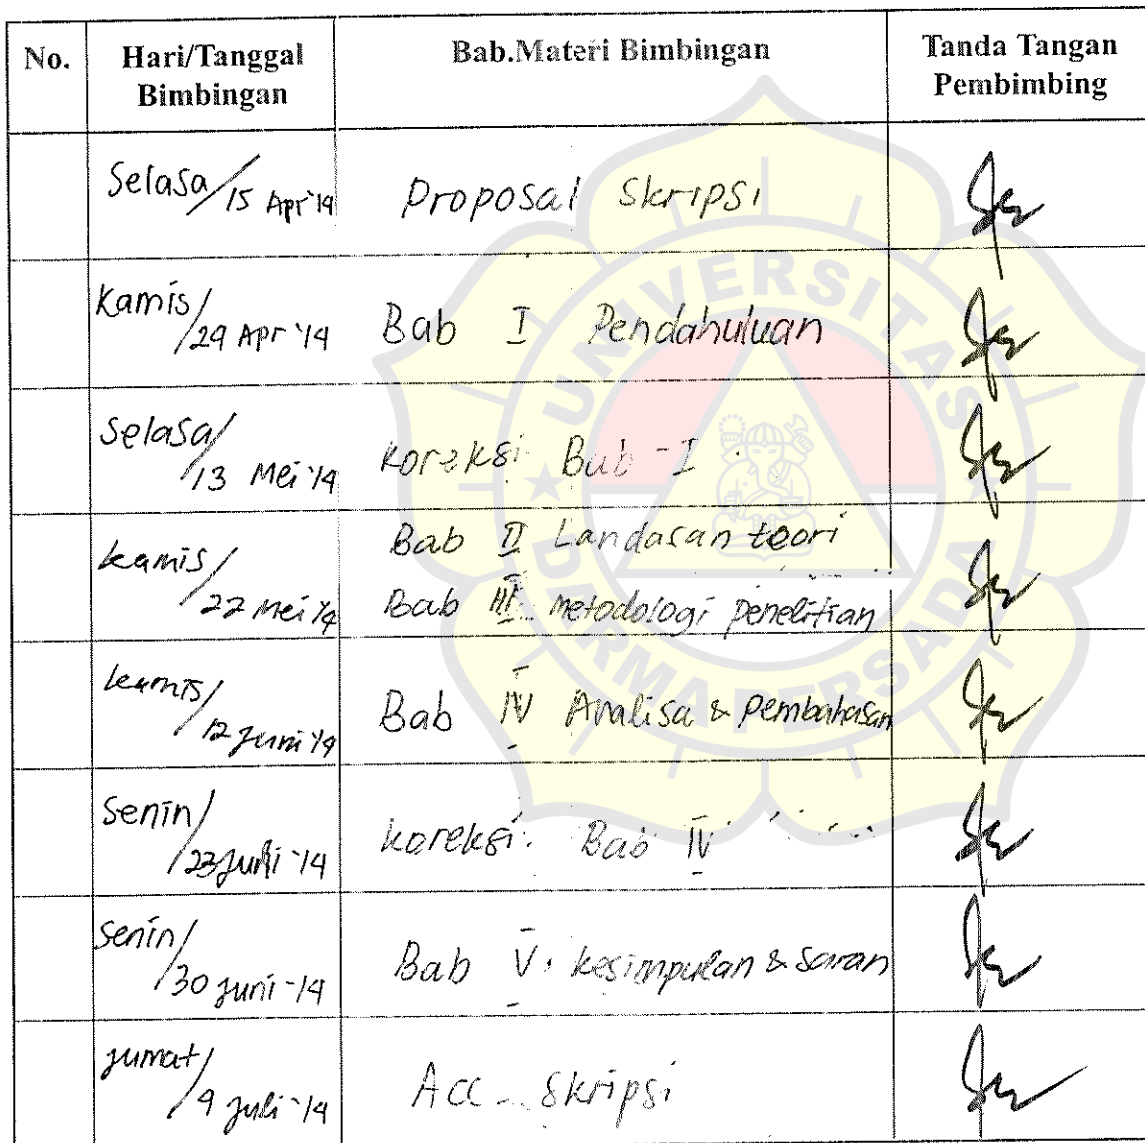 No. Hari/Tanggal Bimbingan Bab.Materi Bimbingan Tanda Tangan Pembimbing
Selasa/15 Apr '14 Proposal Skripsi
Kamis/29 Apr '14 Bab I Pendahuluan
Selasa/13 Mei '14 Koreksi Bab-I
Kamis/22 Mei '14 Bab II Landasan teori
Bab III metodologi penelitian
Kamis/12 Juni '14 Bab IV Analisa & Pembahasan
Senin/23 Juni '14 Koreksi Bab IV
Senin/30 Juni '14 Bab V. Kesimpulan & Saran
Jumat/9 Juli '14 Acc Skripsi
UNIVERSITAS
DARMA PERSADA